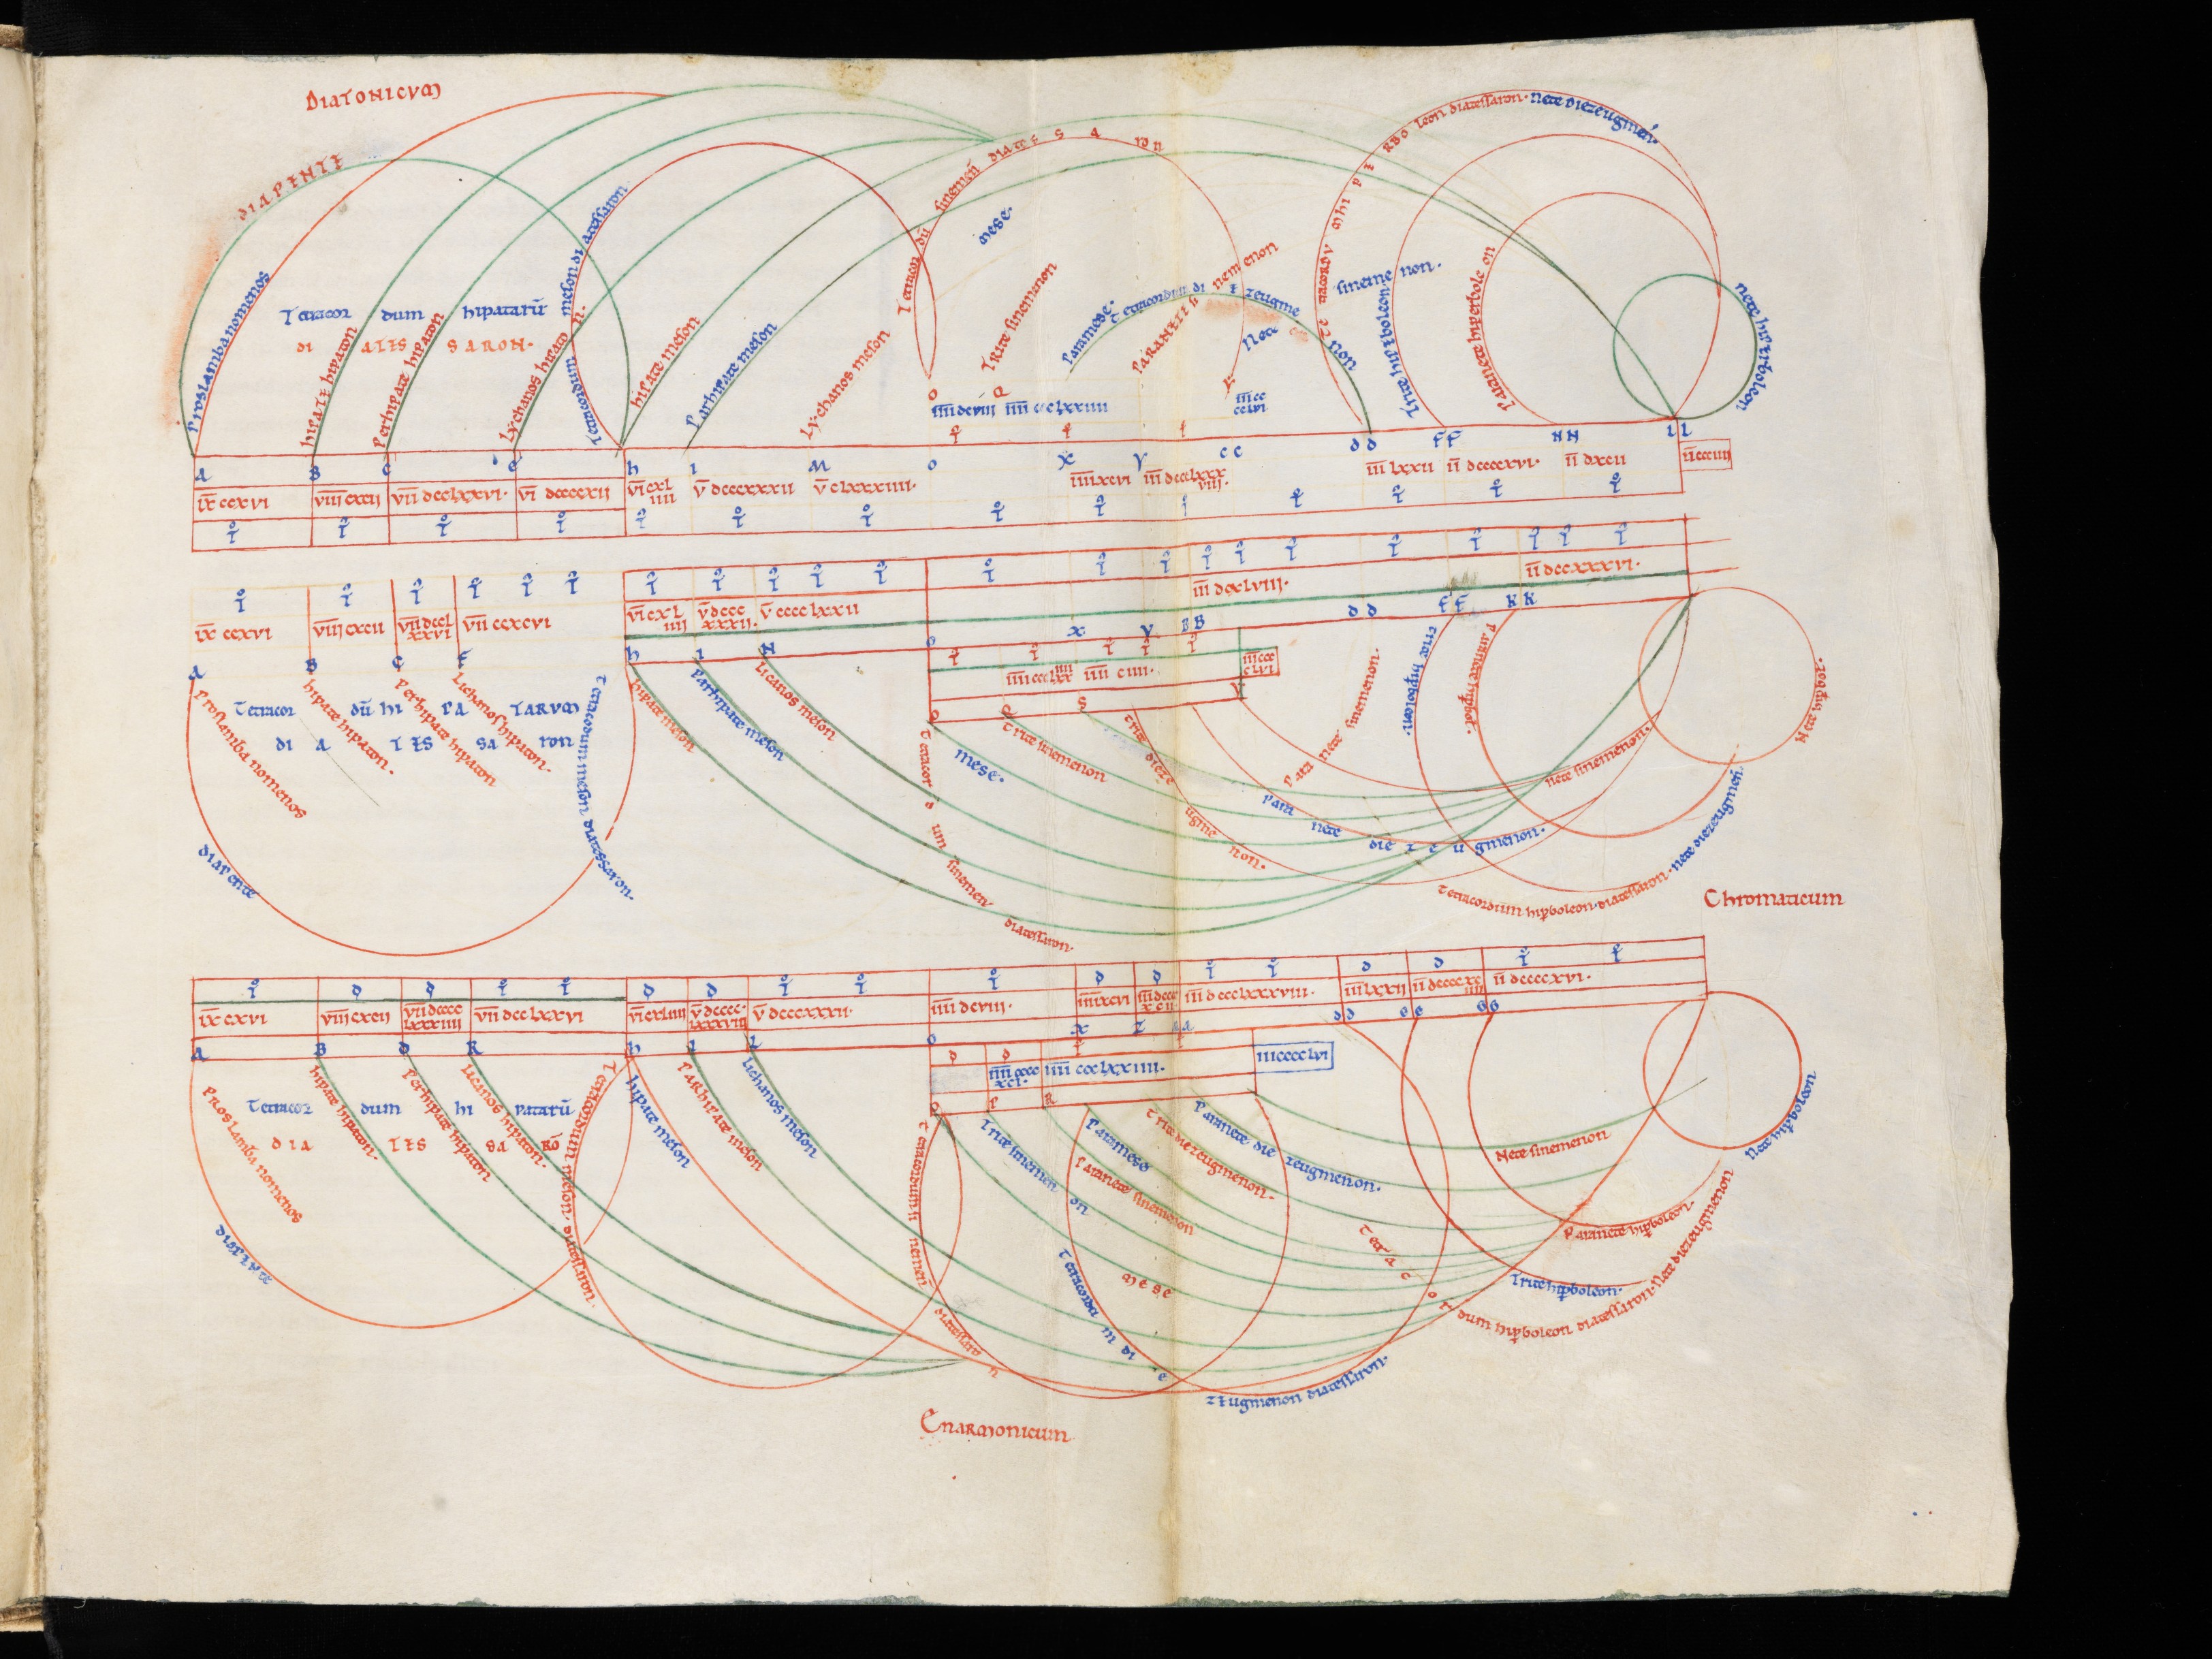 DIATONICUM
DIAPENTE
Proslambanomenos
Tetracor dum hipatarū
di ATES SARON.
hipate hipaton
Perhipate hipaton
Lychanos hipaton
Tetracordum meson di atessaron
hipate meson
Parhipate meson
Lychanos meson
Tetracor dū sinemeñ diatessaron
mese.
Trite sinemenon
Paramese.
Tetracordum di ezeugme non
PARANETE sinemenon
Nete sinemenon.
Trite hiperboleon
Paranete hiperboleon
Tetracordum hiperboleon diatessaron. Nete diezeugmeñ.
nete hiperboleon
o Q
iiii dcviii iiii ccclxxiiii
iii cc cclvi
A B C E h i M o X Y CC DD FF NN LL
ix ccxvi viii cxcii vii dcclxxvi. vi dccccxii vi cxliiii v dcccxxxii v clxxxiiii. iiii xcvi iii dccclxxxviii. iii lxxii ii dccccxvi. ii dxcii ii ccciiii
iii dcxlviii. ii dccxxxvi.
ix ccxvi viii cxcii vii dcclxxvi vii ccxcvi vi cxliiii v dcccxxxii. v cccclxxii
A B C F h i N o x Y BB DD FF KK
iiii ccclxxiiii iiii ciiii. iii cccclvi
o Q S V
Proslambanomenos
Tetracor dū hi PA TARUM
di A TES SA ron
hipate hipaton.
Perhipate hipaton
Lichanos hipaton.
Tetracordum meson diatessaron.
diapente
hipate meson
Parhipate meson
Licanos meson
mese.
Trite sinemenon
Tetracordum sinemen diatessaron.
Trite diezeugmenon.
Paranete sinemenon.
Paranete diezeugmenon.
nete sinemenon.
Trite hiperboleon.
Paranete hiperbol.
Tetracordum hiperboleon. diatessaron. nete diezeugmeñ.
Chromaticum
ix cxvi viii cxcii vii dccccLxxxiiii vii dcclxxvi vi cxliiii v dcccc.lxxxviii v dcccxxxii. iiii dcviii. iiii xcvi iii dccccxcii iii dccclxxxviii. iii lxxii ii dccccxciiii ii dccccxvi.
A B D R h i L o x Z AA DD EE GG
iiii ccccxci. iiii ccclxxiiii. iii cccclvi
o P R
Proslambanomenos
Tetracor dum hi patarū
DIA TES SA RŌ
hipate hipaton.
Perhipate hipaton
Licanos hipaton.
Tetracordum meson. diatessaron.
diapente
hipate meson
PARhipate meson
Lichanos meson
Tetracordum nemeñ diatessaron
Trite sinemenon
Paramese
Paranete sinemenon
Trite diezeugmenon.
Paranete diezeugmenon.
mese
Tetracordum diezeugmenon diatessaron.
Nete sinemenon
Paranete hiperboleon.
Trite hiperboleon.
Tetracordum hiperboleon diatessaron. Nete diezeugmenon
nete hiperboleon
Enarmonicum